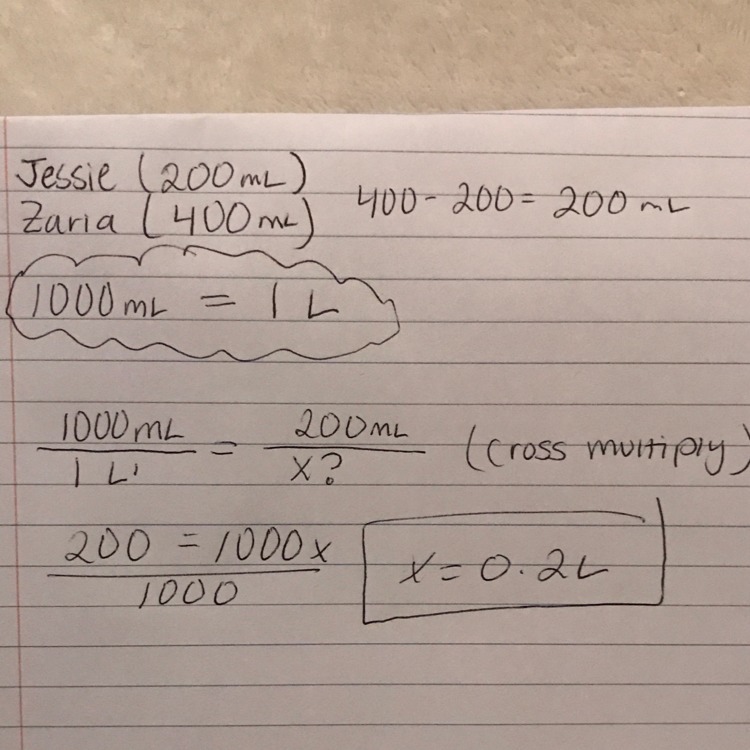 Jessie (200mL)
Zaria (400mL)
400 - 200 = 200 mL
1000mL = 1 L
1000mL / 1 L = 200mL / X? (cross multiply)
200 = 1000x
1000
X = 0.2L